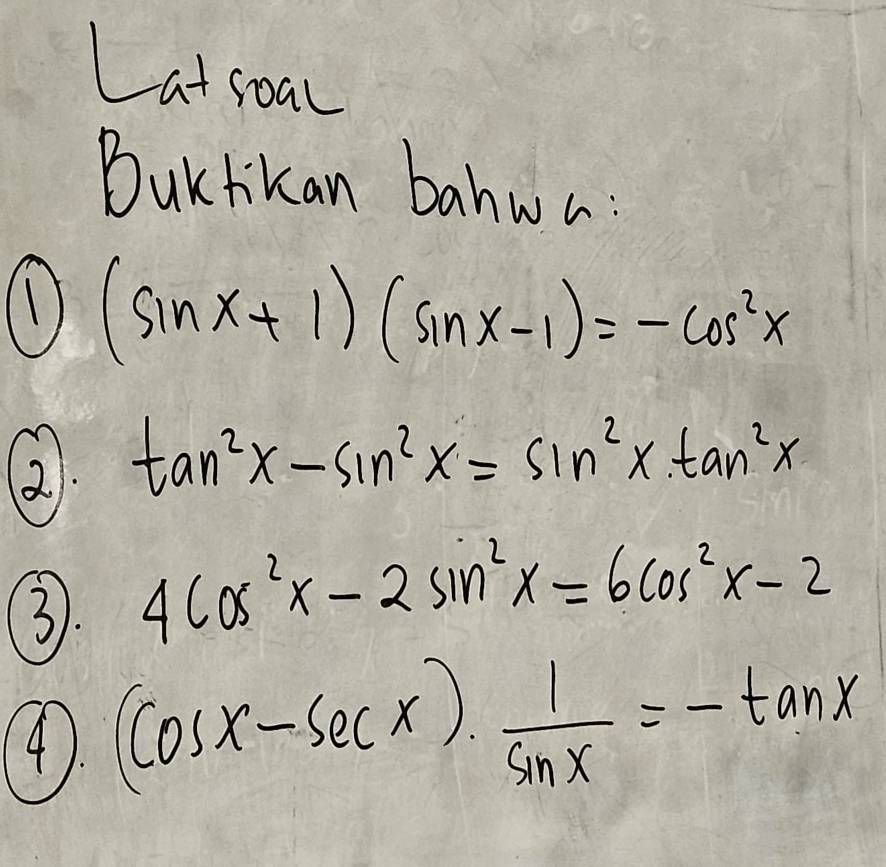 Latsoal
Buktikan bahwa:
① (sinx+1)(sinx-1)=-cos²x
②. tan²x-sin²x=sin²x.tan²x
③. 4cos²x-2sin²x=6cos²x-2
④. (cosx-secx). 1/sinx =-tanx